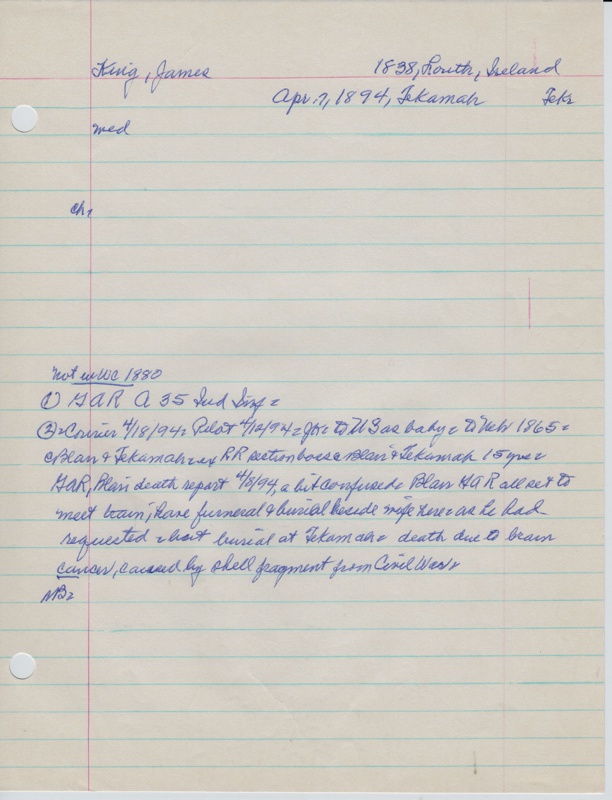 King, James 1838, Louth, Ireland
Apr. 7, 1894, Tekamah Tek
wed
ch,
not in WC 1880
① GAR A 35 Ind Inf =
② = Courier 4/18/94 = Pilot 4/12/94 = to US as baby = to Nebr 1865 =
Blair & Tekamah = ex RR section boss = Blair & Tekamah 15 yrs =
GAR, Blair death report 4/8/94, a bit confused = Blair GAR all set to
meet train, have funeral & burial beside wife here = as he had
requested = but burial at Tekamah = death due to brain
cancer, caused by shell fragment from Civil War =
NB =